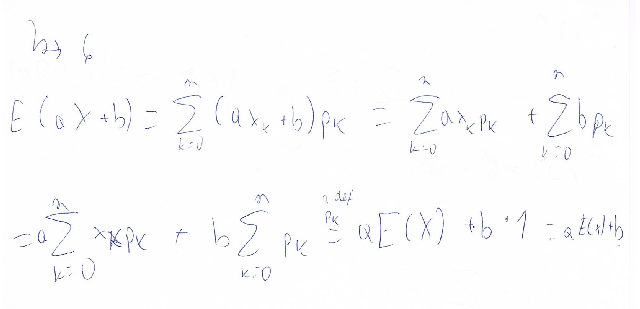 E(aX+b) = \sum_{k=0}^{n} (ax_k+b)p_k = \sum_{k=0}^{n} ax_k p_k + \sum_{k=0}^{n} b p_k
= a \sum_{k=0}^{n} x_k p_k + b \sum_{k=0}^{n} p_k \overset{z def p_k}{=} aE(X) + b \cdot 1 = aE(X)+b